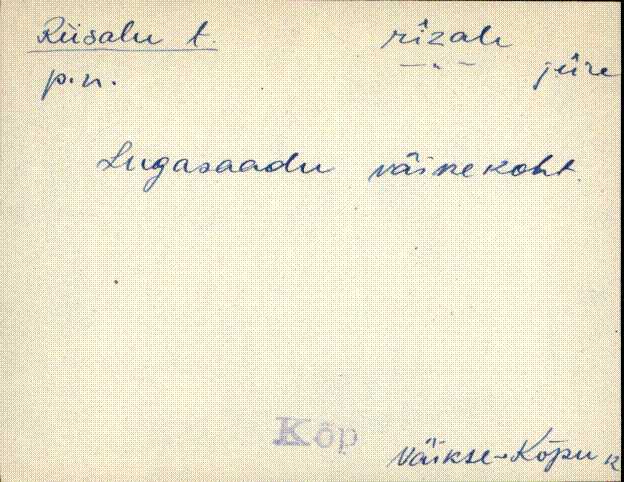 Riisalu t. rîzalu
p.n. —"— jüre
Lugasaadu väike koht.
Kõp
Väikse-Kõpu k